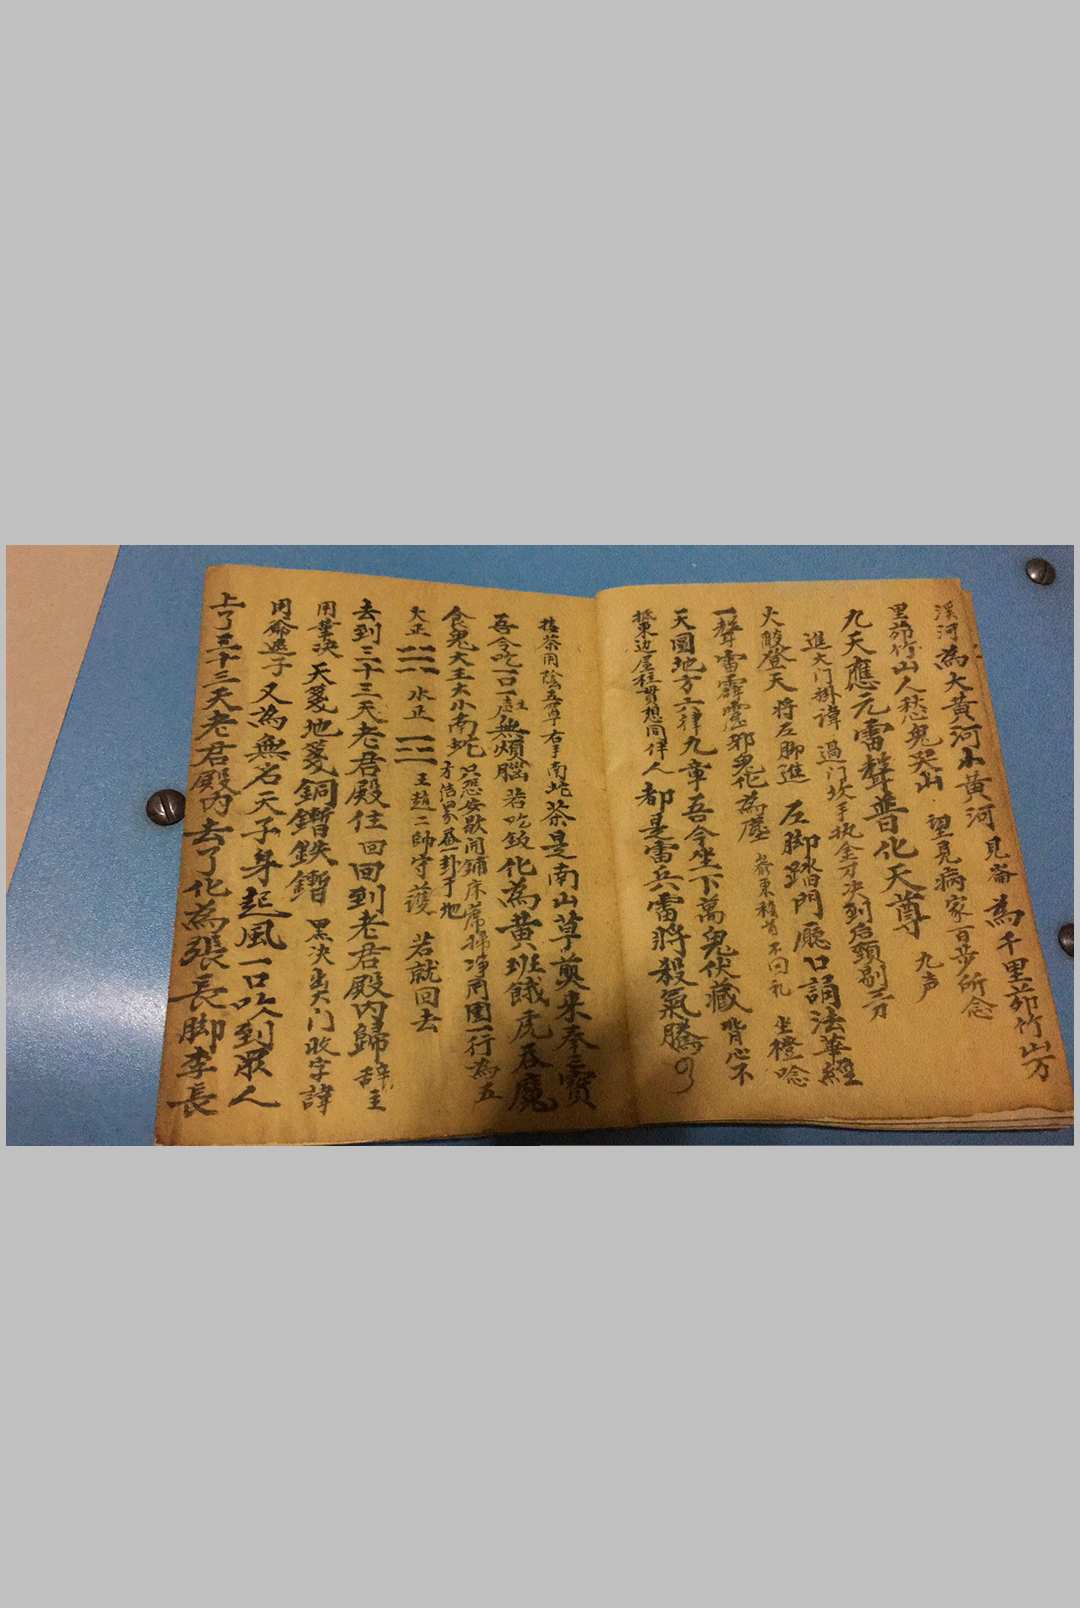 溪河為大黃河小黃河見崙為千里茆竹山万
里茆竹山人愁鬼哭山望見病家百步所念
九天應元雷聲普化天尊九声
進大门掛諱過门坎手执金刀决到后頸剔三刀
火酸登天将左脚進左脚踏門廳口誦法華經
一聲雷霹靂邪鬼化為塵不回礼坐橙唸
天圓地方六律九章吾今坐下萬鬼伏藏背心不
抵東边屋柱貫想同伴人都是雷兵雷將殺氣騰
接茶用陰五雷右手南蛇茶是南山草煎来奉三寳
吾今吃一口一處無煩腦若吃飯化為黃班餓虎吞魔
食鬼大王大小南蛇只恐安歇用鋪床席掃净用圍一行為五
方借界叠一卦于地
火正 ☲ 水正 王趙二帥守護若就回去
去到三十三天老君殿住回回到老君殿内歸辞主
用業决天䇲地䇲銅鐕鉄鐕黑决出大门收字諱
用命退子又為無名天子身起風一口吹到眾人
上了三十三天老君殿内去了化為張長脚李長